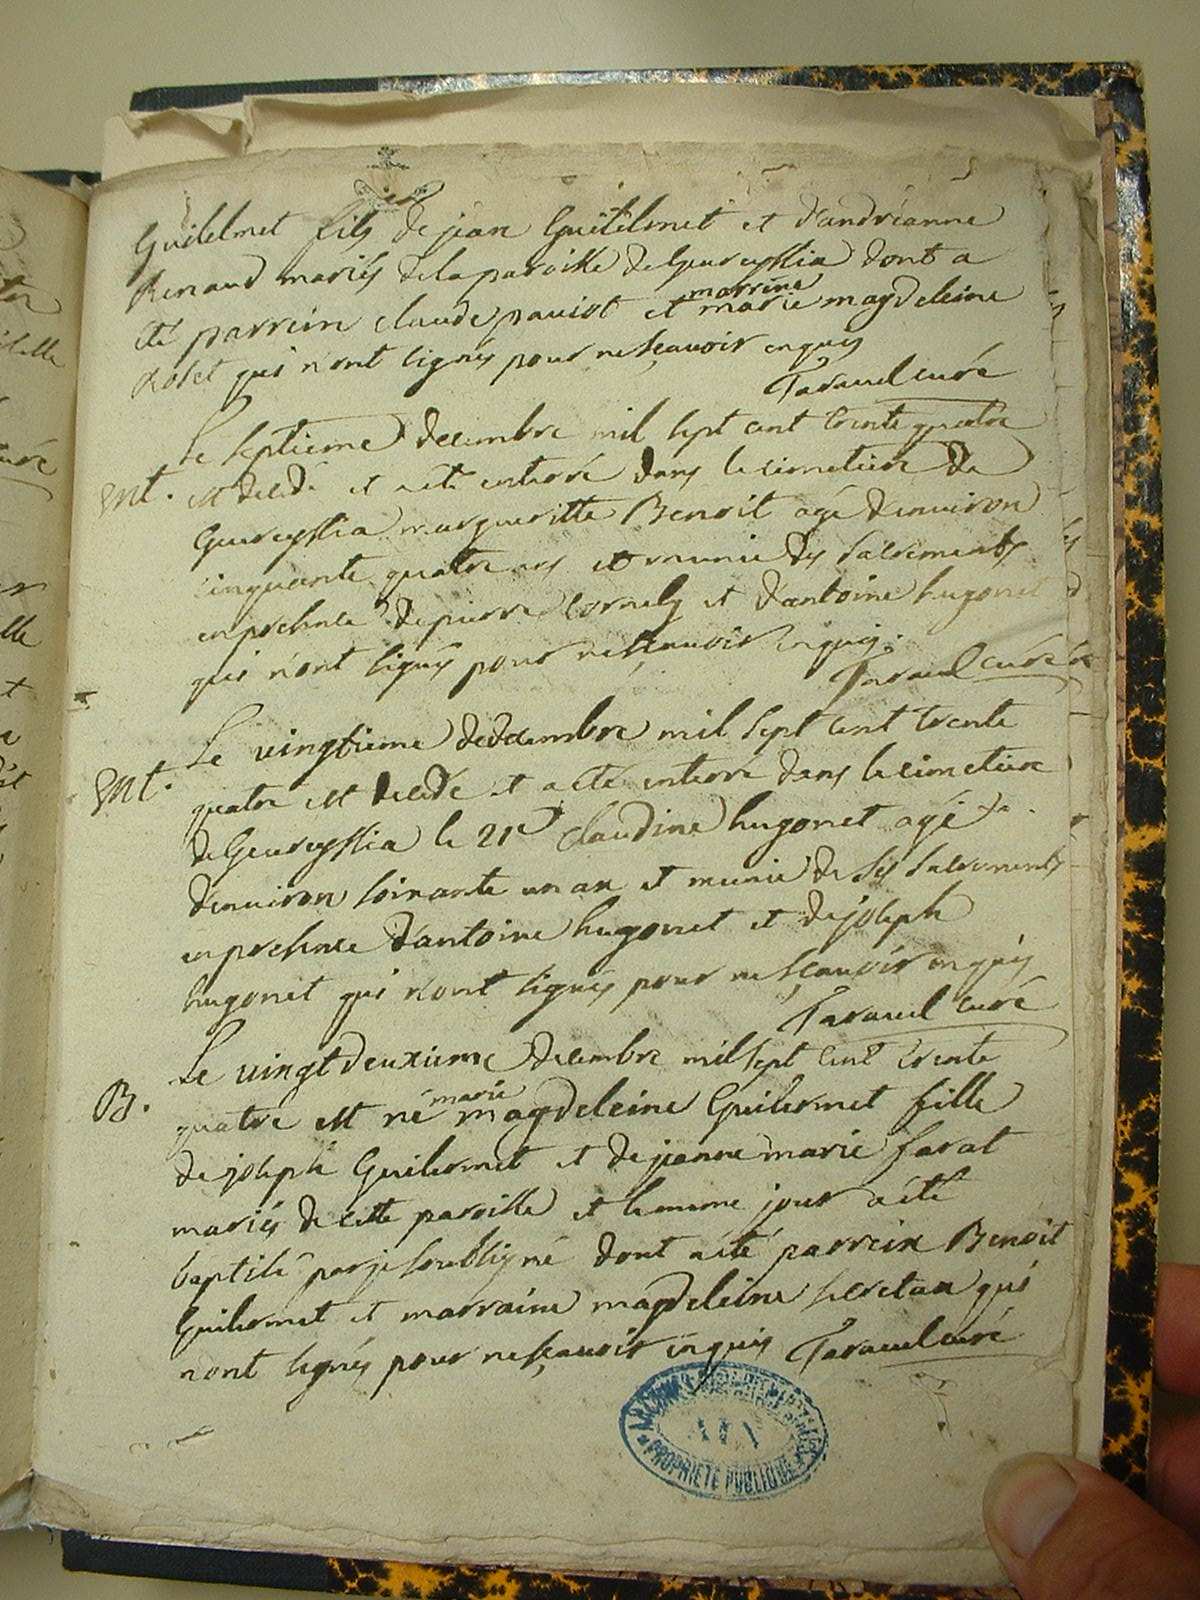 Guilelmet fils de jean Guilelmet et d'andréanne
Renaud mariés de la paroisse de Geureyssia dont a
été parrein claude pauiot et marrine marie magdeleine
Roset qui n'ont signés pour ne sçauoir enquis
Taraud curé
Le septieme decembre mil sept cent trente quatre
Ent. est decedé et a été enterré dans le cimetiere de
Geureyssia margueritte Benoit agé denuiron
cinquante quatre ans et munie des sacrements
en presence de pierre Cornely et d'antoine hugonet
qui n'ont signés pour ne sçauoir enquis.
Taraud curé
Le vingtieme de decembre mil sept cent trente
Ent. quatre est decedé et a été enterré dans le cimetiere
de Geureyssia le 21e claudine hugonet agé
denuiron soixante un an et munie de ses sacrements
en presence d'antoine hugonet et de joseph
hugonet qui n'ont signés pour ne sçauoir enquis
Taraud curé
Le vingt deuxieme decembre mil sept cent trente
B. quatre est né marie magdeleine Guilermet fille
de joseph Guilermet et de jeanne marie farat
mariés de cette paroisse et le meme jour a été
baptisé par je soubsigné dont a été parrein Benoit
Guilermet et marraine magdeleine secretan qui
n'ont signés pour ne sçauoir enquis Taraud curé
PROPRIETE PUBLIQUE